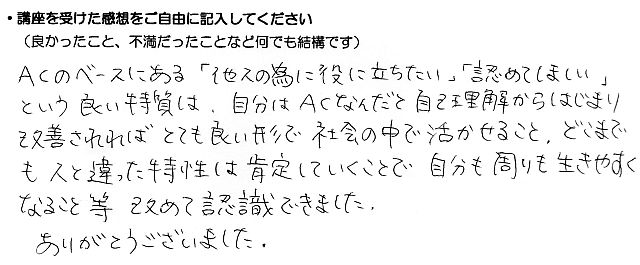 ・講座を受けた感想をご自由に記入してください
（良かったこと、不満だったことなど何でも結構です）
ACのベースにある「他人の為に役に立ちたい」「認めてほしい」
という良い特質は、自分はACなんだと自己理解からはじまり
改善されればとても良い形で社会の中で活かせること、どこまで
も人と違った特性は肯定していくことで自分も周りも生きやすく
なること等改めて認識できました。
ありがとうございました。